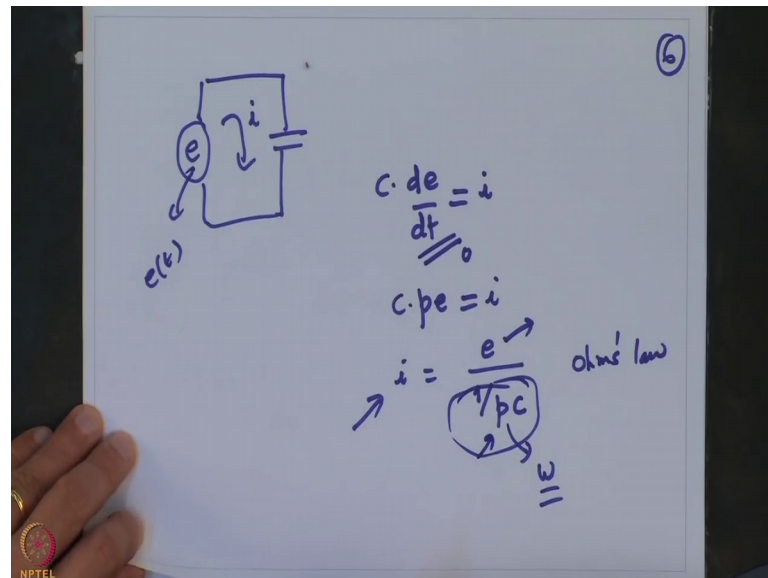 6
e i
e(t)
c. de/dt = i
0
c.pe = i
i = e / 1/pc ohms' law
w
NPTEL